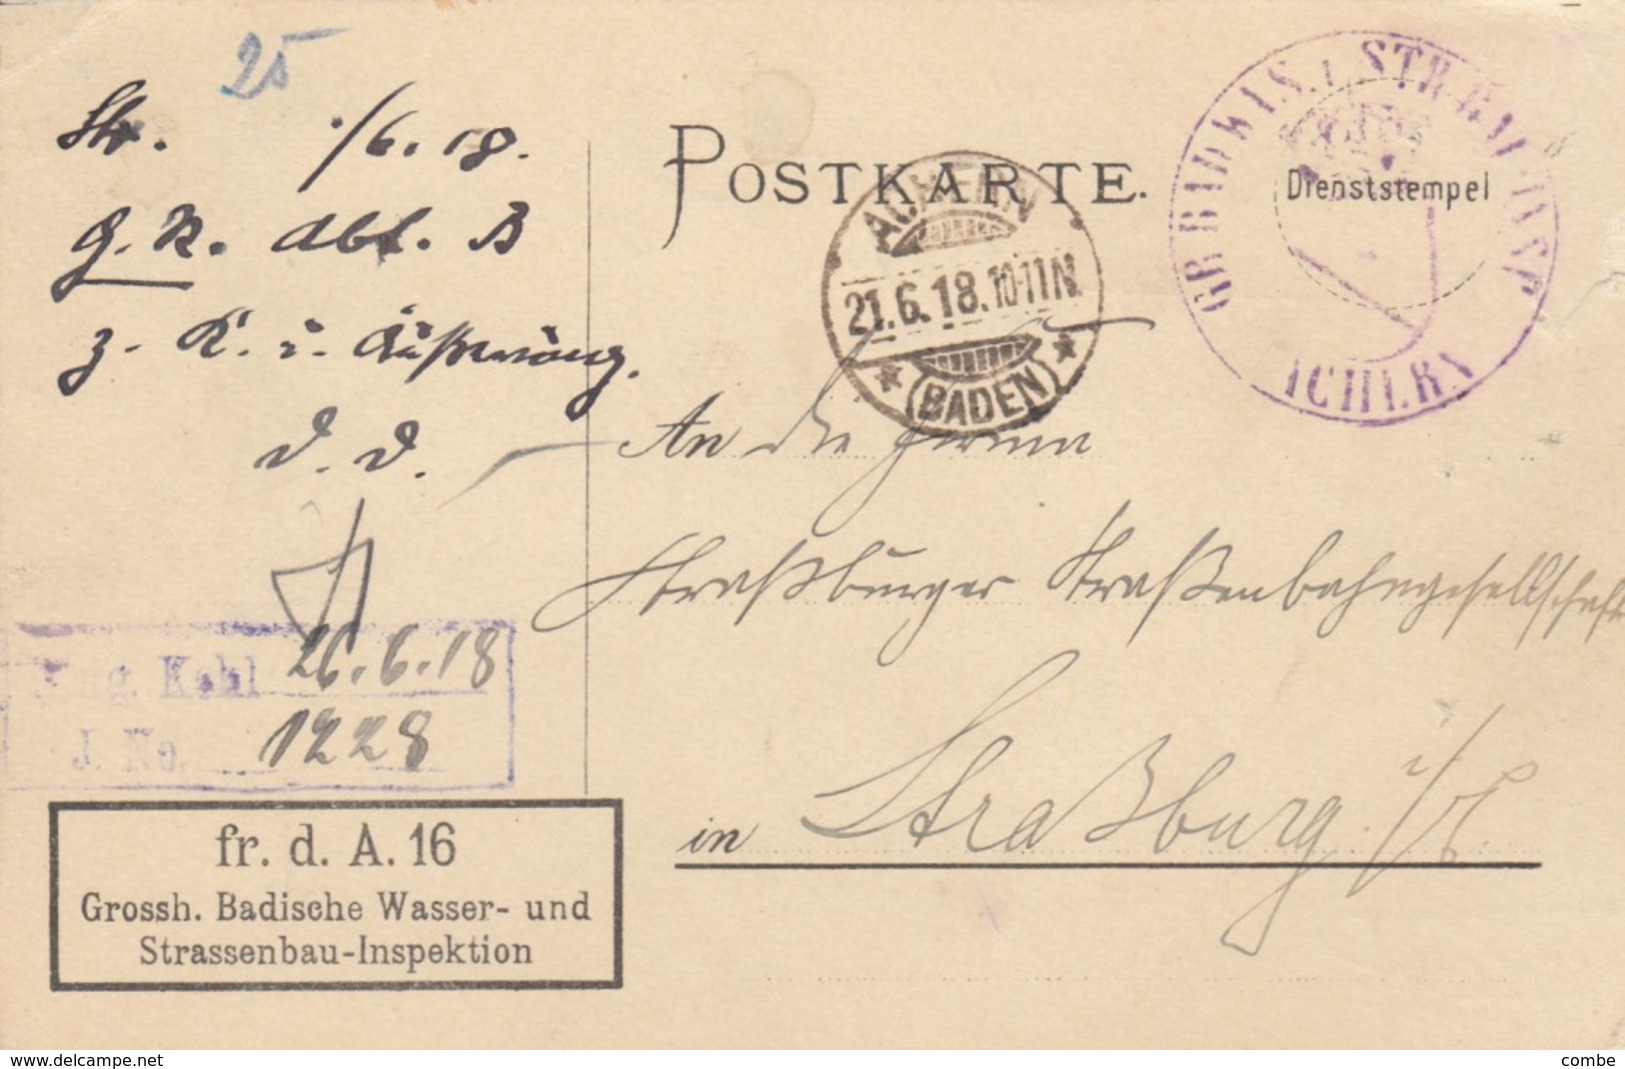 25
Str. /6.18.
G.K. Abt. B
z. K. u. Äußerung.
D. D.
POSTKARTE.
ACHERN
21.6.18.10-11N
(BADEN)
GR. BAD. W.- U. STR. BAU-INSP.
ACHERN
Dienststempel
An die Firma
Straßburger Straßenbahngesellschaft
in Straßburg i/E.
Kehl 26.6.18
J. No. 1228
fr. d. A. 16
Grossh. Badische Wasser- und
Strassenbau-Inspektion
www.delcampe.net
combe